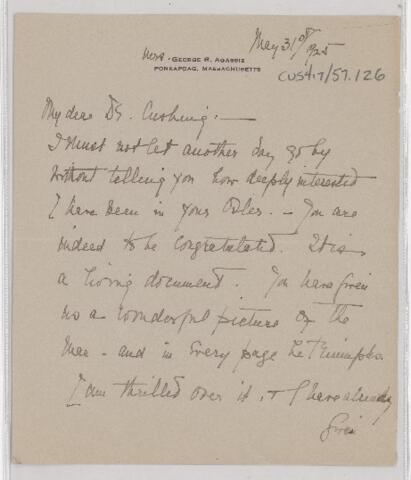 May 31st 1925
Mrs. GEORGE R. AGASSIZ
PONKAPOAG, MASSACHUSETTS
CUS417/57.126
My dear Dr. Cushing:—
I must not let another day go by
without telling you how deeply interested
I have been in your Osler. — You are
indeed to be congratulated. It is
a living document. You have given
us a wonderful picture of the
man - and in every page he triumphs.
I am thrilled over it, & I have already
given